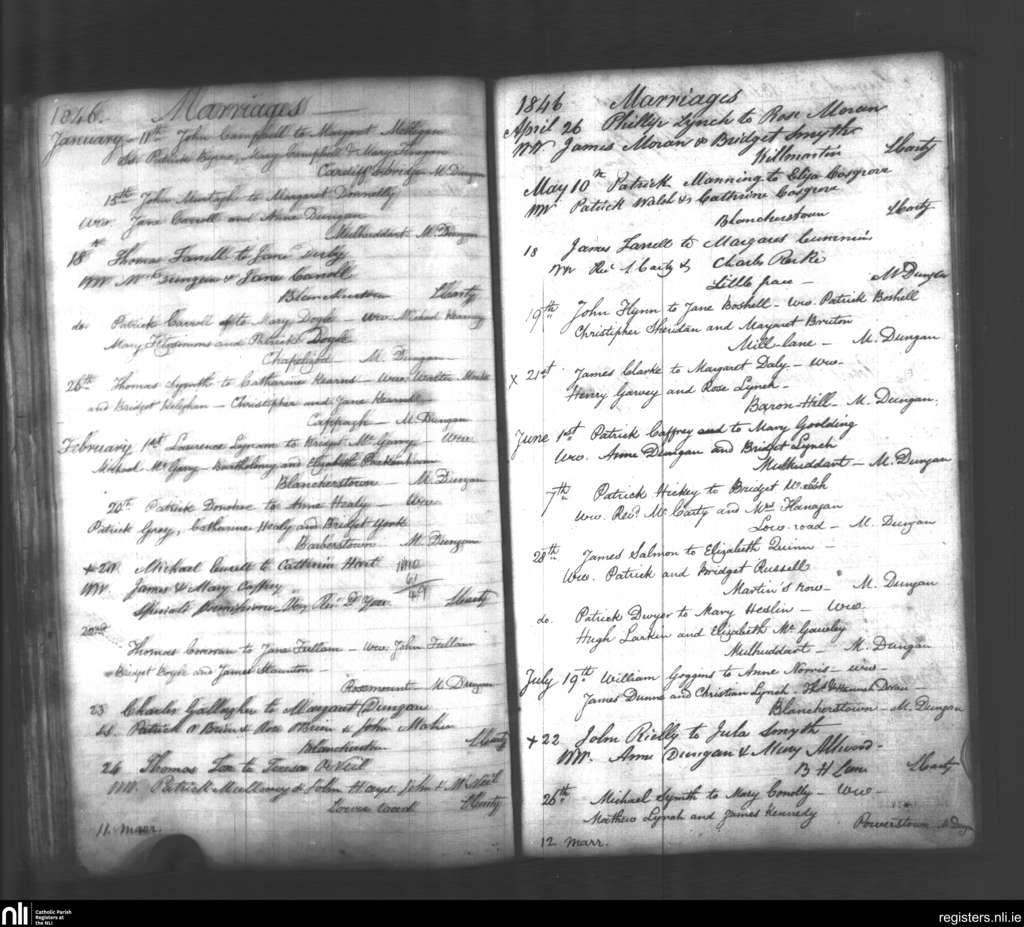 1846. Marriages
January - 11th John Campbell to Margaret
Patrick Byrne, Mary Campbell & Mary
Cardiffsbridge M. Dungan
15th John Murtagh to Margaret Donnelly
Wss. Jane Carroll and Anne Dungan
Mulhuddart M. Dungan
18th Thomas Farrell to Jane
WW. Dungan & Jane Carroll
McCarty
do. Patrick Carroll to Mary Doyle - Wss. Michael
Mary Fitzsimons and Patrick Doyle
M. Dungan
26th Thomas Symth to Catharine Kearns - Wss. Walter
and Bridget - Christopher and Jane
Cappagh - M. Dungan
February 1st Laurence to Bridget Mc Garry - Wss
Michael Mc Garry - Bartholomy and Elizabeth
Blancherstown - M. Dungan
20th Patrick Donohoe to Anne Healy - Wss
Patrick Gray, Catharine Healy and Bridget
Barberstown M. Dungan
Michael to Catherine Hart
WW. James & Mary Caffrey
Revd. Dr. Yore McCarty
22nd
Thomas to Jane Fullam - Wss. John Fullam
Bridget Boyle and James Staunton -
Rosemount - M. Dungan
23 Charles Gallagher to Margaret Dungan
Patrick O Brien & Rose OBrien & John
McCarty
24 Thomas Fox to Teresa O'Neil
WW. Patrick & John Hays John &
Lower road McCarty
11. marr.
1846 Marriages
April 26 Phillip Lynch to Rose Moran
WW James Moran & Bridget Smyth
Killmartin McCarty
May 10th Patrick Manning to Eliza Cosgrove
WW. Patrick Walsh & Cathrine Cosgrove
Blancherstown McCarty
18 James Farrell to Margaret Cummins
WW Revd. Carty & Charles
Little pace - McDungan
19th John Flynn to Jane Boshell - Wss. Patrick Boshell
Christopher Sheridan and Margaret Bruton
Mill-lane - M. Dungan
x 21st James Clarke to Margaret Daly - Wss.
Henry Garvey and Rose Lynch -
Baron-Hill - M. Dungan.
June 1st Patrick Caffrey to Mary Goolding
Wss. Anne Dungan and Bridget Lynch
Mulhuddart - M. Dungan
7th Patrick Hickey to Bridget Walsh
Wss. Revd. McCarty and Flanagan
Low-road - M. Dungan
28th James Salmon to Elizabeth Quinn -
Wss. Patrick and Bridget Russell
Martin's row - M. Dungan
do. Patrick Dwyer to Mary Heslin - Wss
Hugh Larkin and Elizabeth Mc
Mulhuddart - M. Dungan
July 19th William Goggins to Anne Norris - Wss -
James Dunne and Christian Lynch -
Blancherstown - M. Dungan
x 22 John Rielly to Jula Smyth
WW. Anne Dungan & Mary
B H Lane McCarty
26th Michael Symth to Mary Conolly - Wss -
Matthew Lynch and James Kennedy
Powerstown - M. Dungan
12 marr.
nli
Catholic Parish
Registers at
the NLI
registers.nli.ie